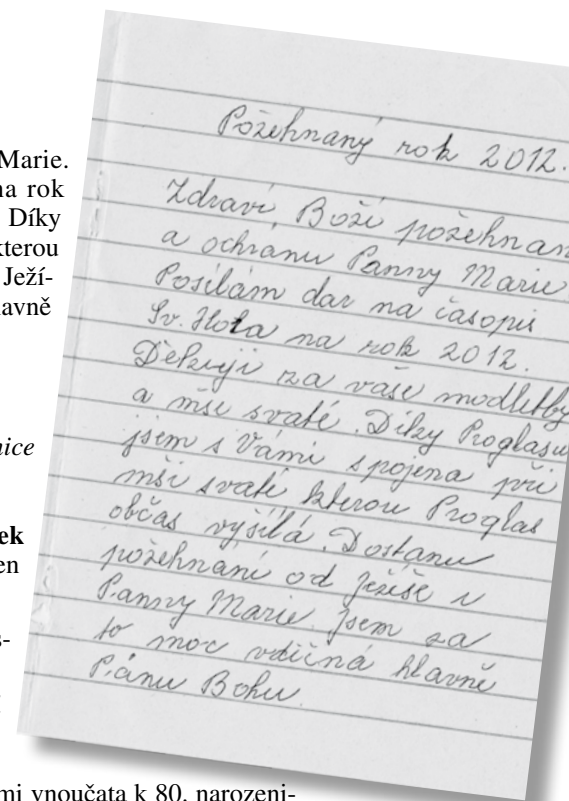 Marie.
na rok
Díky
kterou
Ježí-
lavně
nice
ek
en
s-
mi vnoučata k 80. narozeni-
Požehnaný rok 2012.
Zdraví, Boží požehnan
a ochranu Panny Marie
Posílám dar na časopis
Sv. Hora na rok 2012.
Děkuji za vaše modlitby
a mše svaté. Díky Proglasu
jsem s Vámi spojena při
mši svaté kterou Proglas
občas vysílá. Dostanu
požehnání od Ježíše i
Panny Marie. Jsem za
to moc vděčná hlavně
Pánu Bohu.